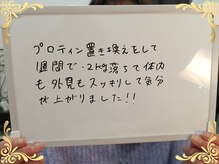 プロテイン置き換えをして
1週間で-2kg落ちて体内
も外見もスッキリして気分
が上がりました!!